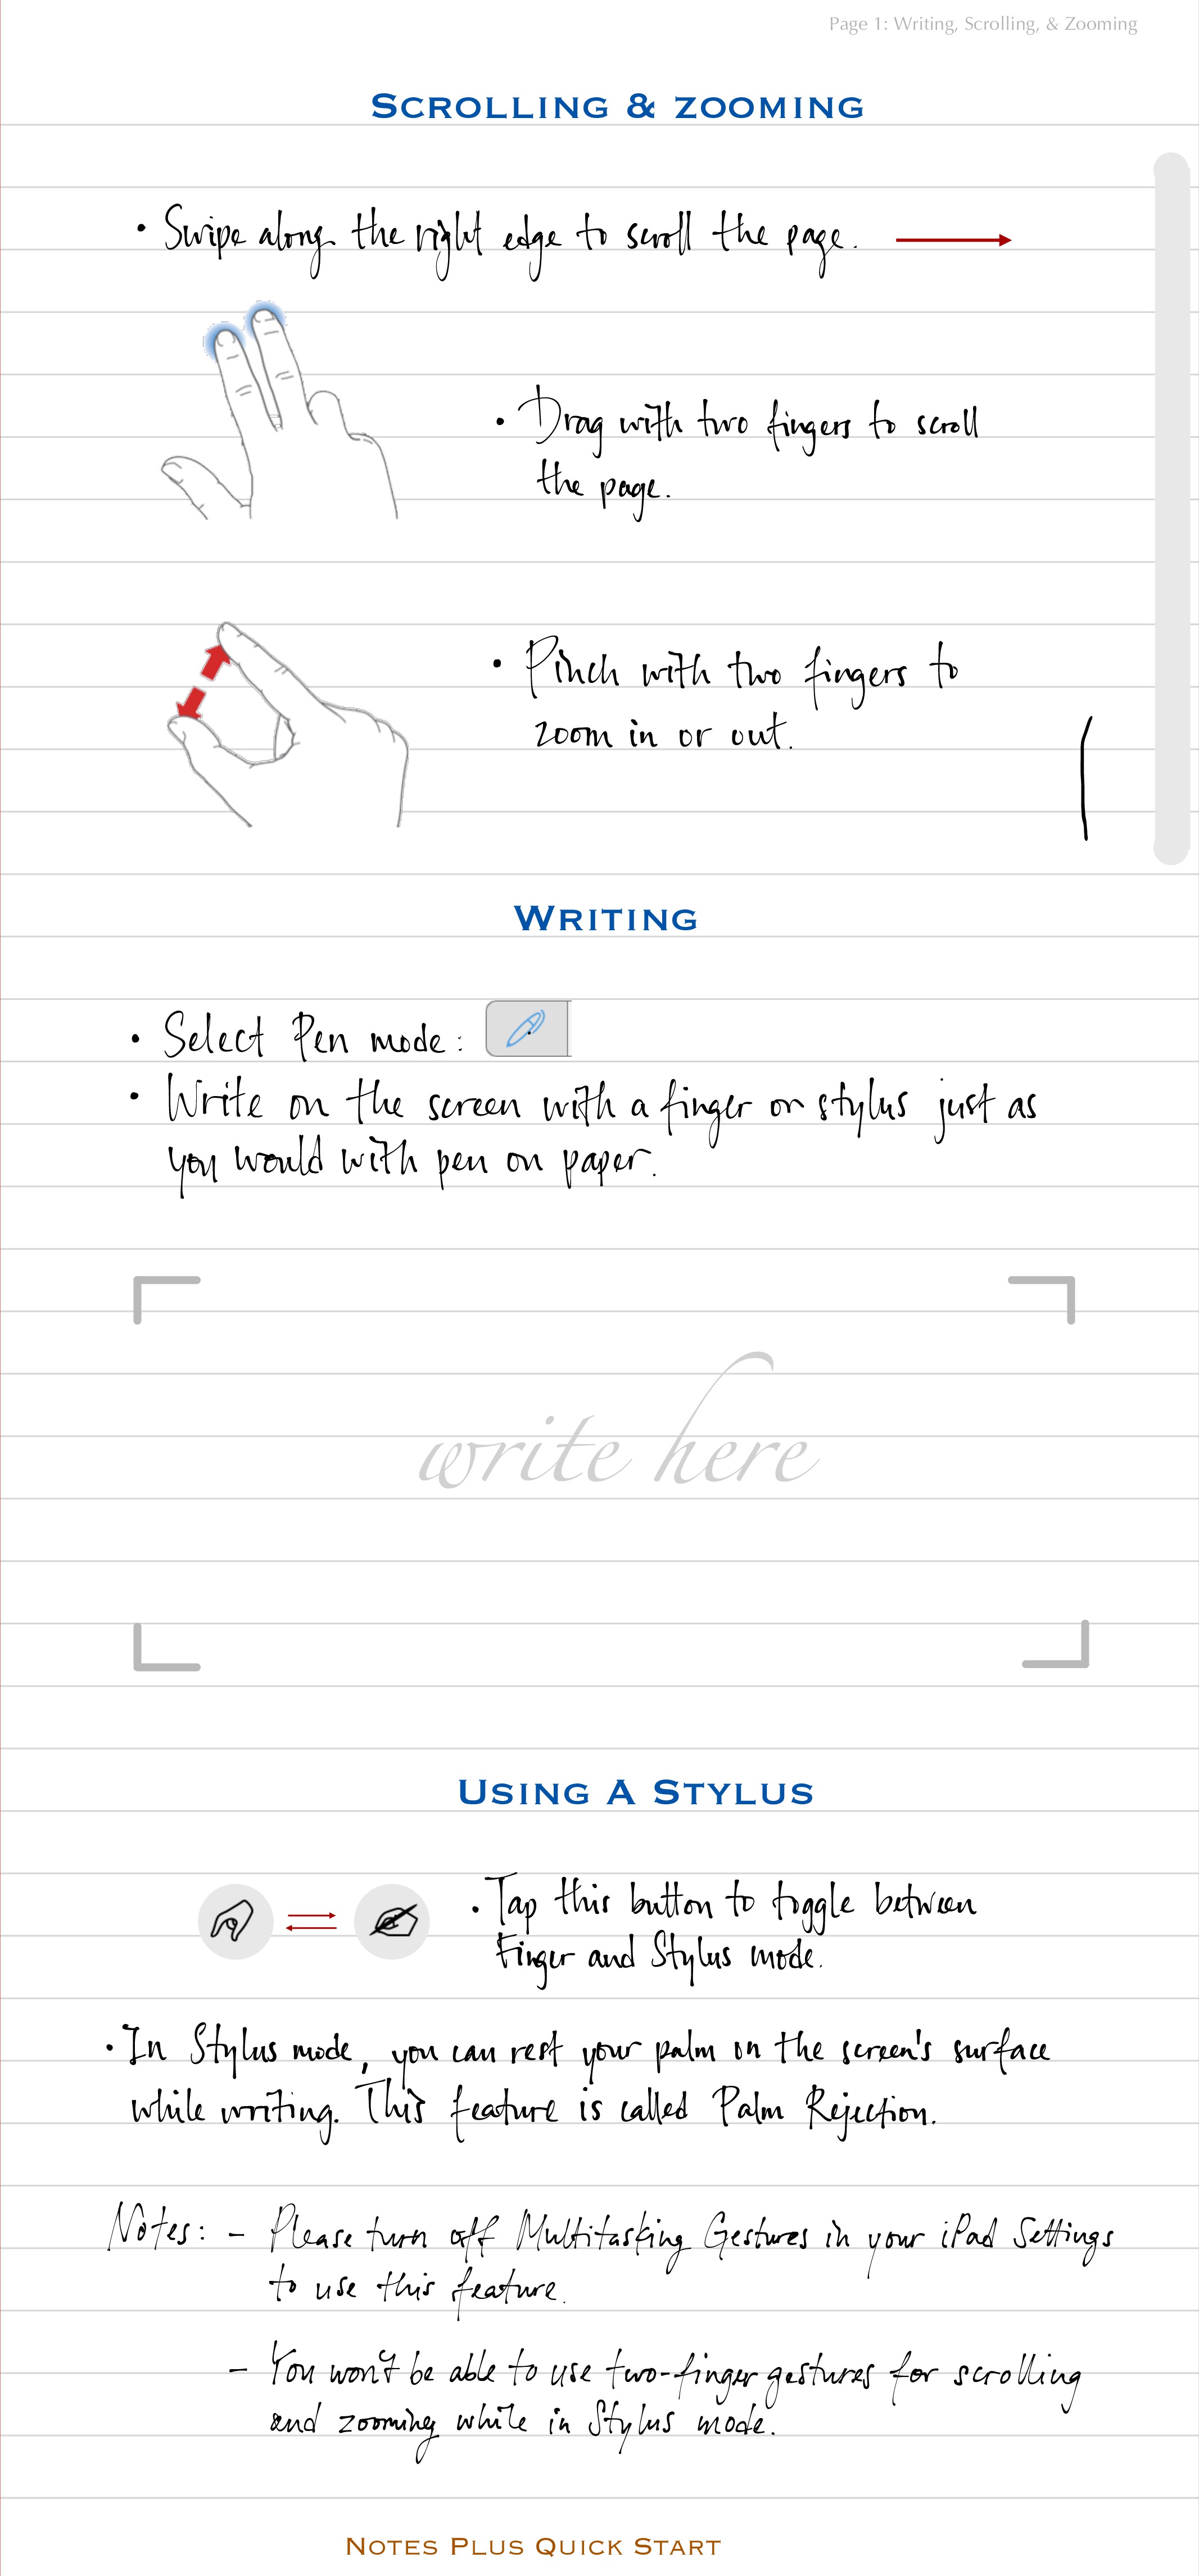 Page 1: Writing, Scrolling, & Zooming
SCROLLING & ZOOMING
• Swipe along the right edge to scroll the page.
• Drag with two fingers to scroll
the page.
• Pinch with two fingers to
zoom in or out.
WRITING
• Select Pen mode:
• Write on the screen with a finger or stylus just as
you would with pen on paper.
write here
USING A STYLUS
• Tap this button to toggle between
Finger and Stylus mode.
• In Stylus mode, you can rest your palm on the screen's surface
while writing. This feature is called Palm Rejection.
Notes: - Please turn off Multitasking Gestures in your iPad Settings
to use this feature.
- You won't be able to use two-finger gestures for scrolling
and zooming while in Stylus mode.
NOTES PLUS QUICK START